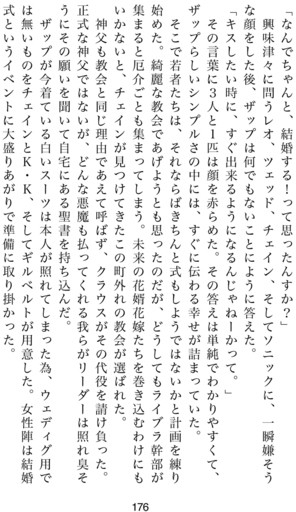 「なんでちゃんと、結婚する!って思ったんすか?」
　興味津々に問うレオ、ツェッド、チェイン、そしてソニックに、一瞬嫌そう
な顔をした後、ザップは何でもないことにように答えた。
「キスしたい時に、すぐ出来るようになるんじゃねーかって。」
　その言葉に3人と1匹は顔を赤らめた。その答えは単純でわかりやすくて、
ザップらしいシンプルさの中には、すぐに伝わる幸せが詰まっていた。
　そこで若者たちは、それならばきちんと式もしようではないかと計画を練り
始めた。綺麗な教会であげようとも思ったのだが、どうしてもライブラ幹部が
集まると厄介ごとも集まってしまう。未来の花婿花嫁たちを巻き込むわけにも
いかないと、チェインが見つけてきたこの町外れの教会が選ばれた。
　神父も教会と同じ理由であえて呼ばず、クラウスがその代役を請け負った。
正式な神父ではないが、どんな悪魔も払ってくれる我らがリーダーは照れ臭そ
うにその願いを聞いて自宅にある聖書を持ち込んだ。
　ザップが今着ている白いスーツは本人が照れてしまった為、ウェディグ用で
は無いものをチェインとK・K、そしてギルベルトが用意した。女性陣は結婚
式というイベントに大盛りあがりで準備に取り掛かった。
176